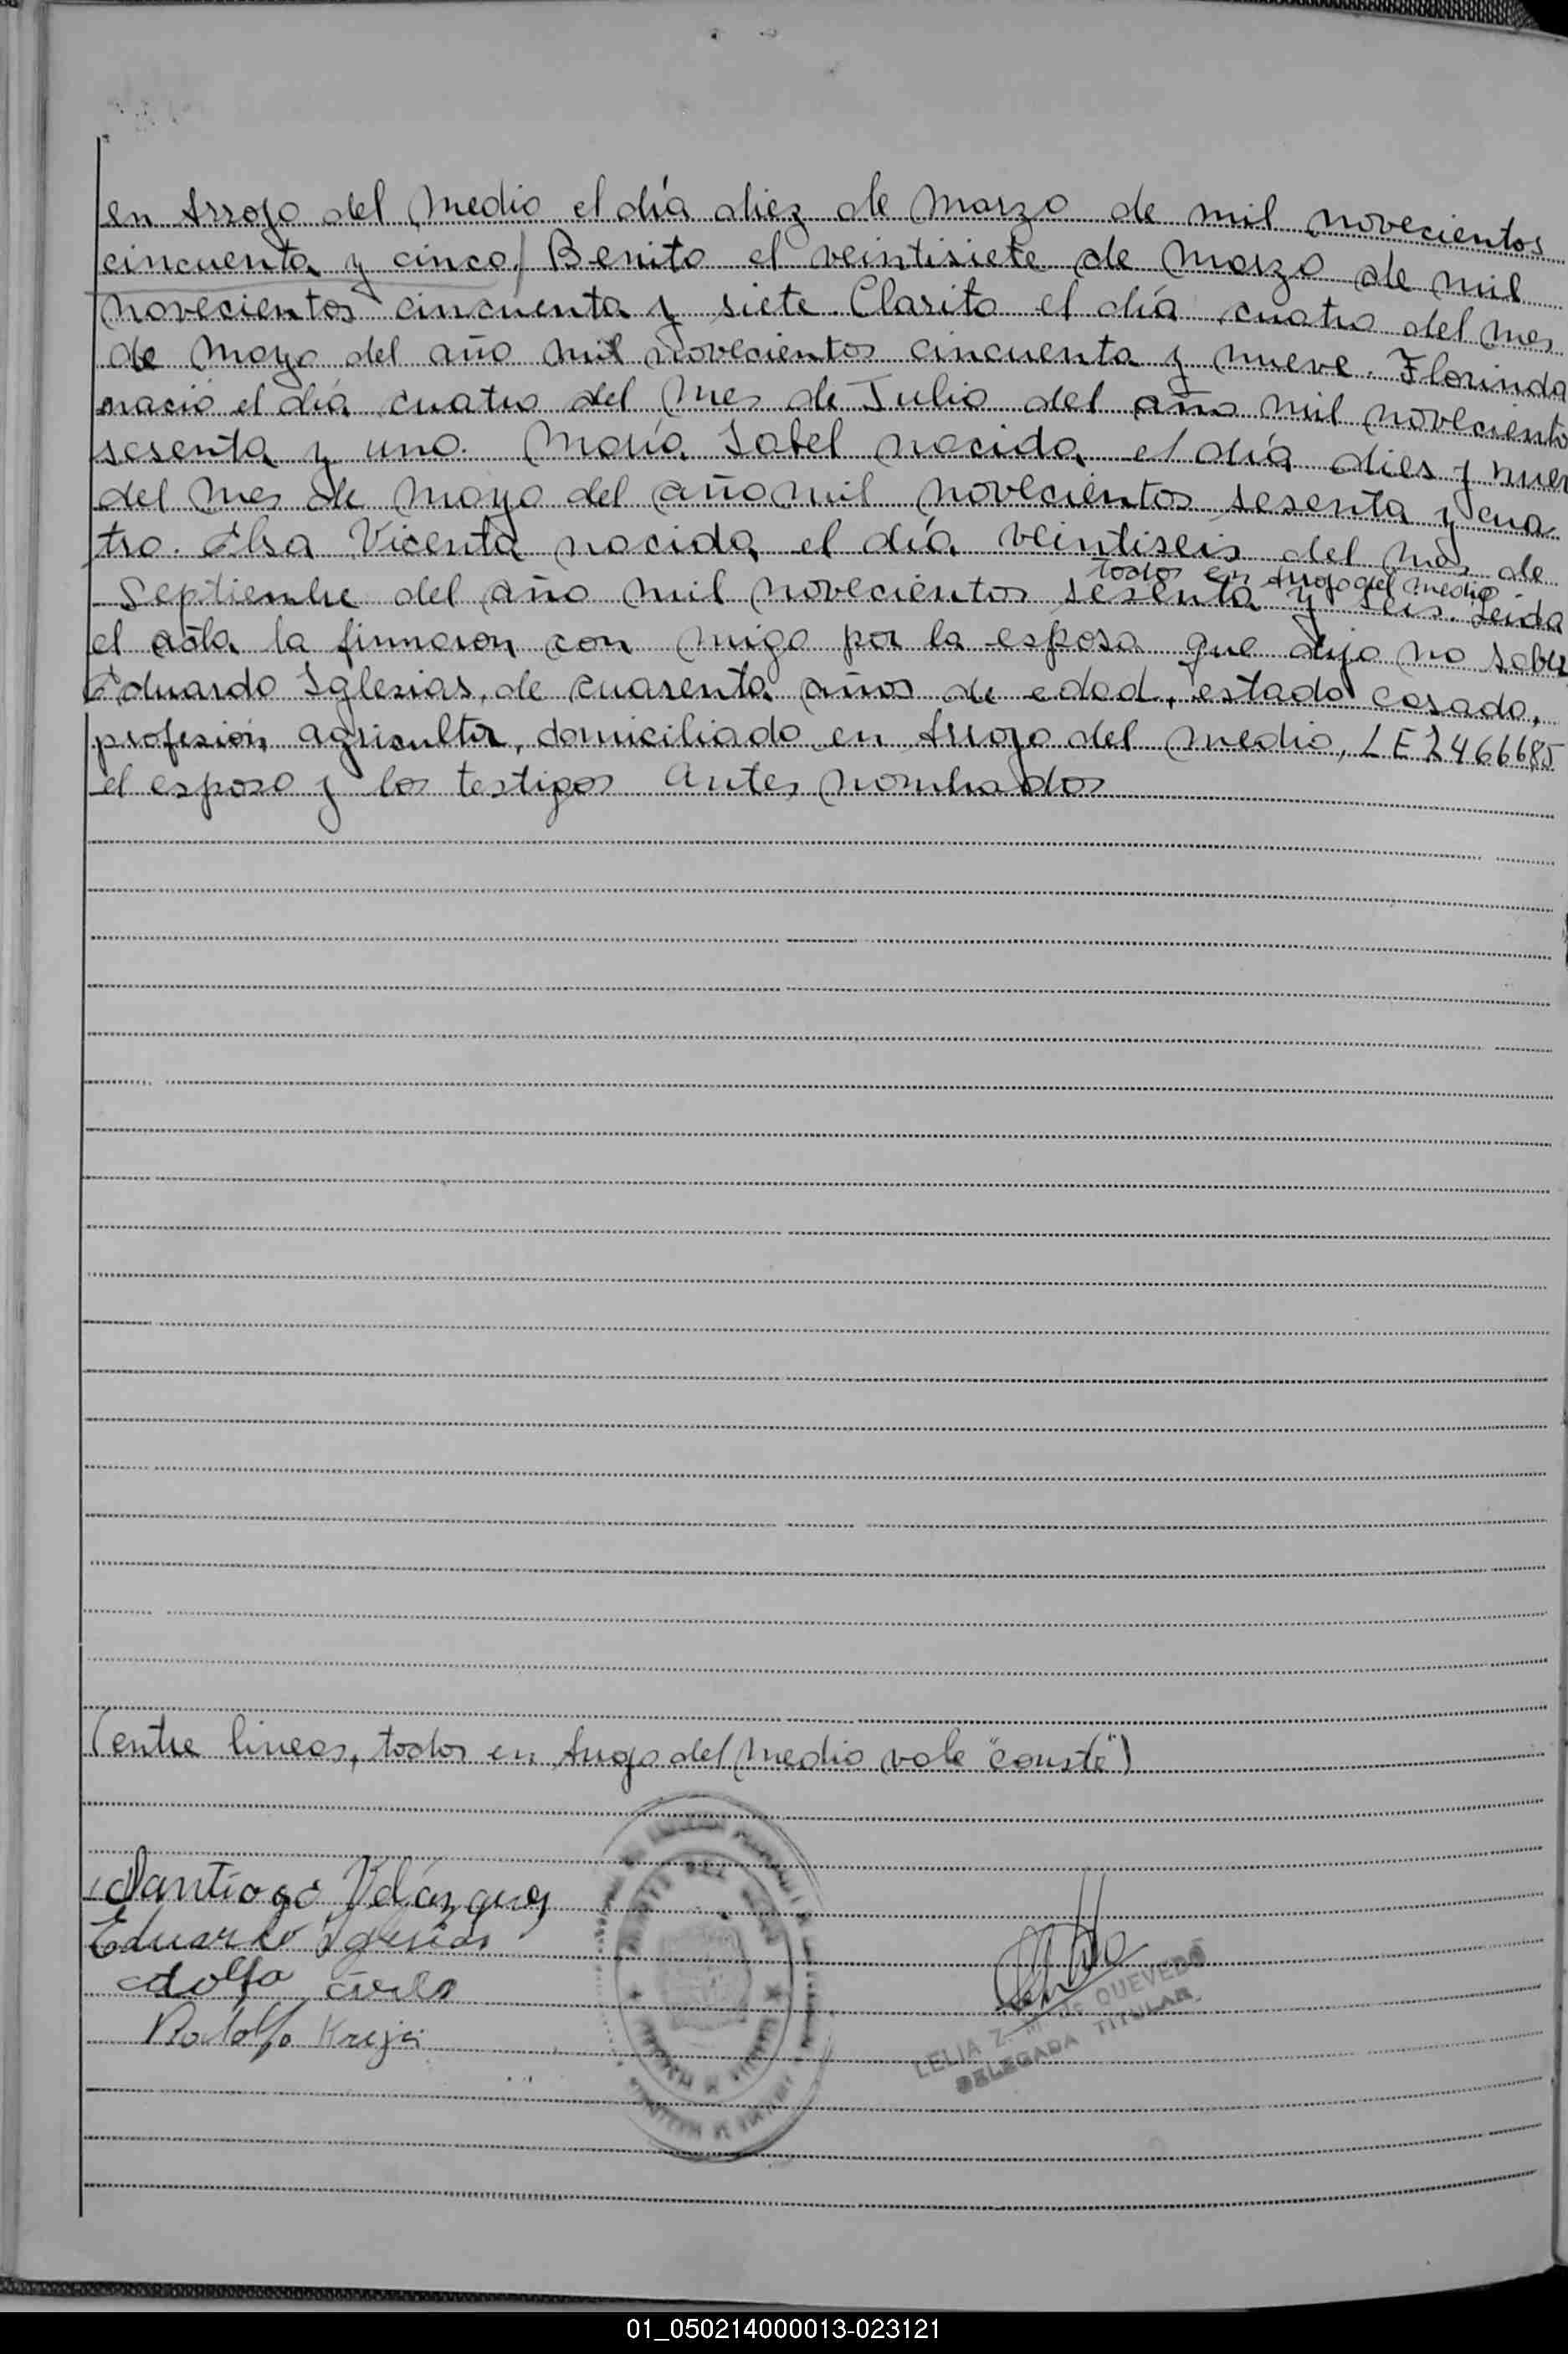 en Arroyo del Medio el día diez de Marzo de mil novecientos
cincuenta y cinco / Benito el veintisiete de Marzo de mil
novecientos cincuenta y siete. Clarita el día cuatro del mes
de Mayo del año mil novecientos cincuenta y nueve. Florinda
nació el día cuatro del mes de Julio del año mil noveciento
sesenta y uno. María Isabel nacida el día dies y nuev
del mes de Mayo del año mil novecientos sesenta y cua
tro. Elsa Vicenta nacida el día veintiseis del mes de
todos en Arroyo del Medio
Septiembre del año mil novecientos sesenta y seis. Leida
el acta la firmaron con migo por la esposa que dijo no saber
Eduardo Iglesias, de cuarenta años de edad, estado casado,
profesión agricultor, domiciliado en Arroyo del Medio, L E 2466685
el esposo y los testigos antes nombrados
(entre lineas, todos en Arroyo del Medio vale "conste")
Santiago Velázquez
Eduardo Iglesias
Adolfo
Rodolfo Kreja
LELIA Z. M. de QUEVEDO
DELEGADA TITULAR
01_050214000013-023121